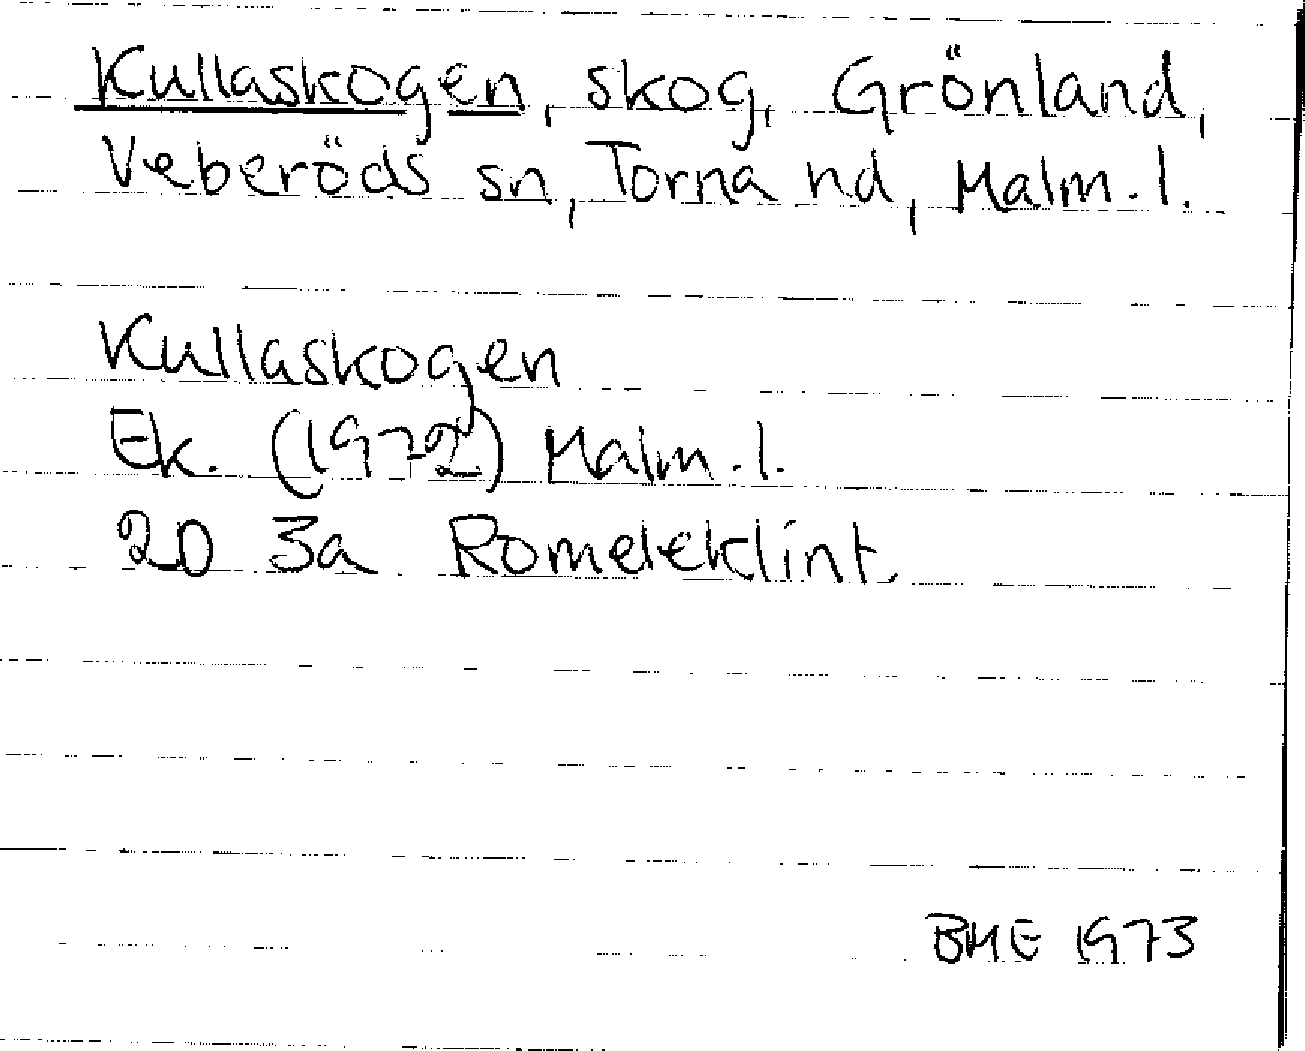 Kullaskogen, skog, Grönland,
Veberöds sn, Torna hd, Malm. l.
Kullaskogen
Ek. (1972) Malm. l.
2D 3a Romeleklint.
BME 1973